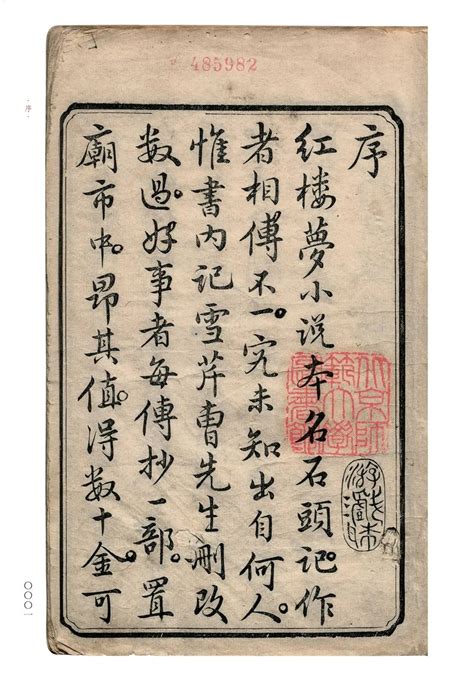 485982
序
红楼夢小说本名石頭记。作
者相傳不一。究未知出自何人。
惟書内记雪芹曹先生刪改
数過。好事者每傳抄一部。置
廟市中。昂其值。得数十金。可
北京師
範大學
圖書館
·序·
〇〇〇一